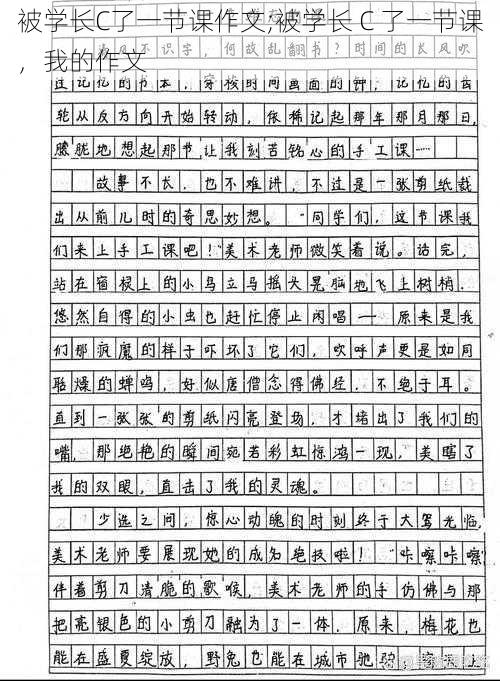 被学长C了一节课作文,被学长 C 了一节课
，我的作文
清风不识字，何故乱翻书？时间的长风吹
过记忆的书本，穿梭时间画面的钟，记忆的齿
轮从反方向开始转动，依稀记起那年那月那日，
朦胧地想起那节让我刻苦铭心的手工课……
故事不长，也不难讲，不过是一张剪纸载
出从前儿时的奇思妙想。“同学们，这节课我
们来上手工课吧！”美术老师微笑着说。话完，
站在窗棂上的小鸟立马摇头晃脑地飞上树梢，
悠然自得的小虫也赶忙停止闲唱——原来是我
们那疯魔的样子吓坏了它们，吹呼声更是如同
聒燥的蝉鸣，好似唐僧念得佛经，不绝于耳。
直到一张张的剪纸闪亮登场，才堵出了我们的
嘴，那绝艳的瞬间宛若彩虹惊鸿一现，美瞎了
我的双眼，直击了我的灵魂。
少选之间，惊心动魄的时刻终于大驾光临，
美术老师要展现她的成名绝技啦！“咔嚓咔嚓”
伴着剪刀清脆的歌喉，美术老师的手仿佛与那
把亮银色的小剪刀融为了一体，原来，梅花也
能在盛夏绽放，野兔也能在城市驰